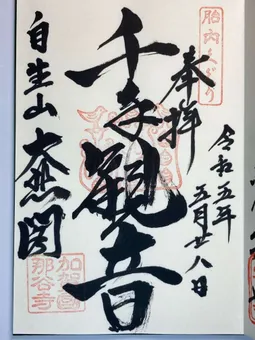 胎内くぐり
令和五年
五月廿八日
奉拝
千手観音
自生山 大悲閣
加賀國
那谷寺